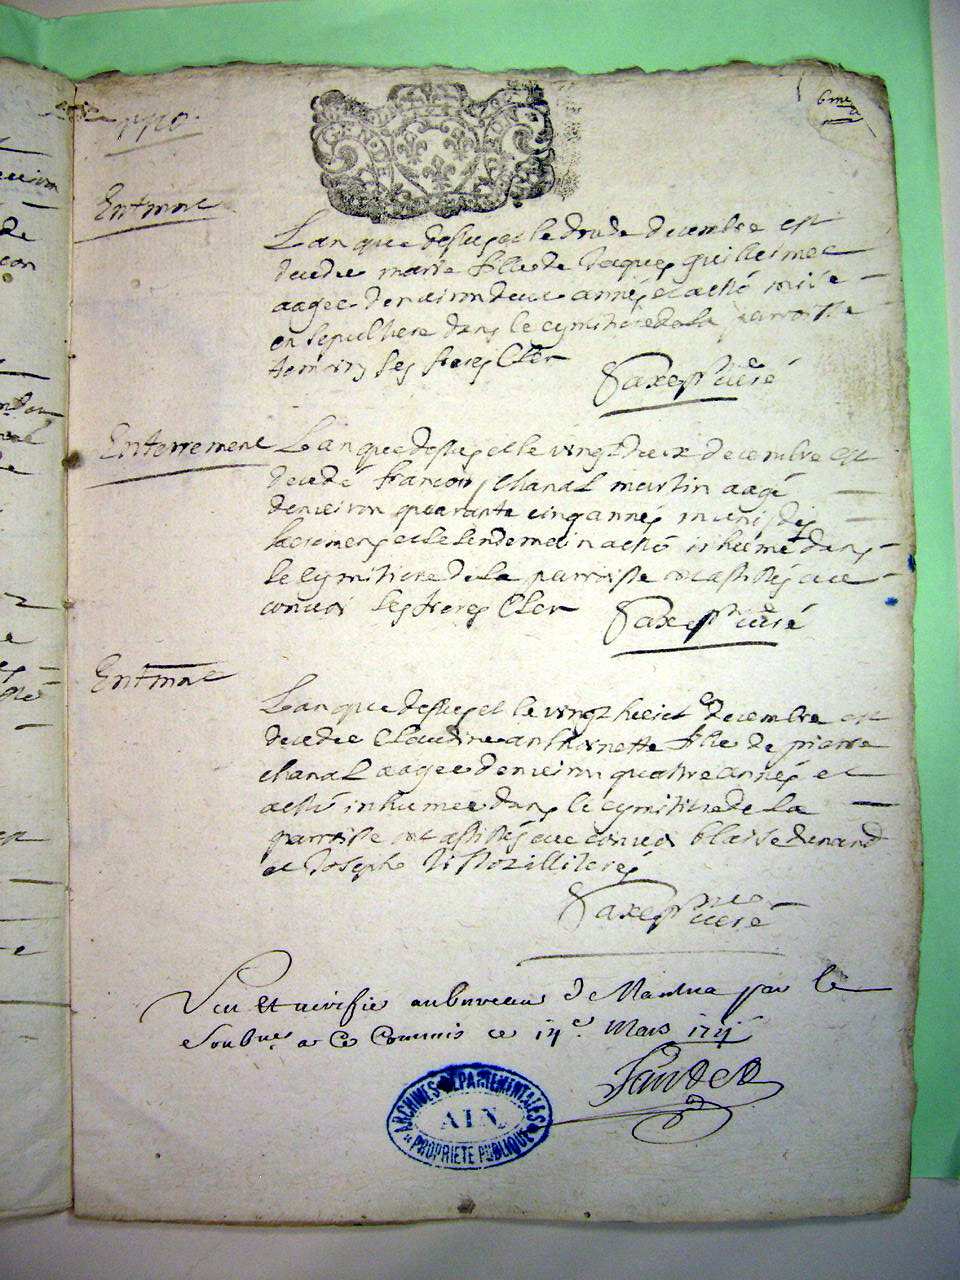 1710.
6me
GEN DE
Enterrement
Lan que dessus et le du de decembre est
decedee marie fille de Jaques guillermet
aagee denviron deux années et a esté mise
en sepulture dans le cymitiere de la parroisse
temoins les freres Cler
Saxe pr curé
Enterrement
Lan que dessus et le vingt deux decembre est
decedé francois Chanal martin aagé
denviron quarante cinq années muni des
sacremens et le lendemain a esté inhumé dans
le cymitiere de la parroisse ont assistés au
convoi les freres Cler
Saxe pr curé
Enterrement
Lan que dessus et le vingt huict decembre est
decedee Claudine anthoinette fille de pierre
Chanal aagee denviron quatre années et
a esté inhumee dans le cymitiere de la
parroisse ont assistés au convoi blaise
et Joseph illiterés
Saxe pr curé
Veu et verifie au bureau de Nantua par le
Soubne a ce Commis ce 14e. Mars
ARCHIVES DEPARTEMENTALES
AIN
PROPRIETE PUBLIQUE